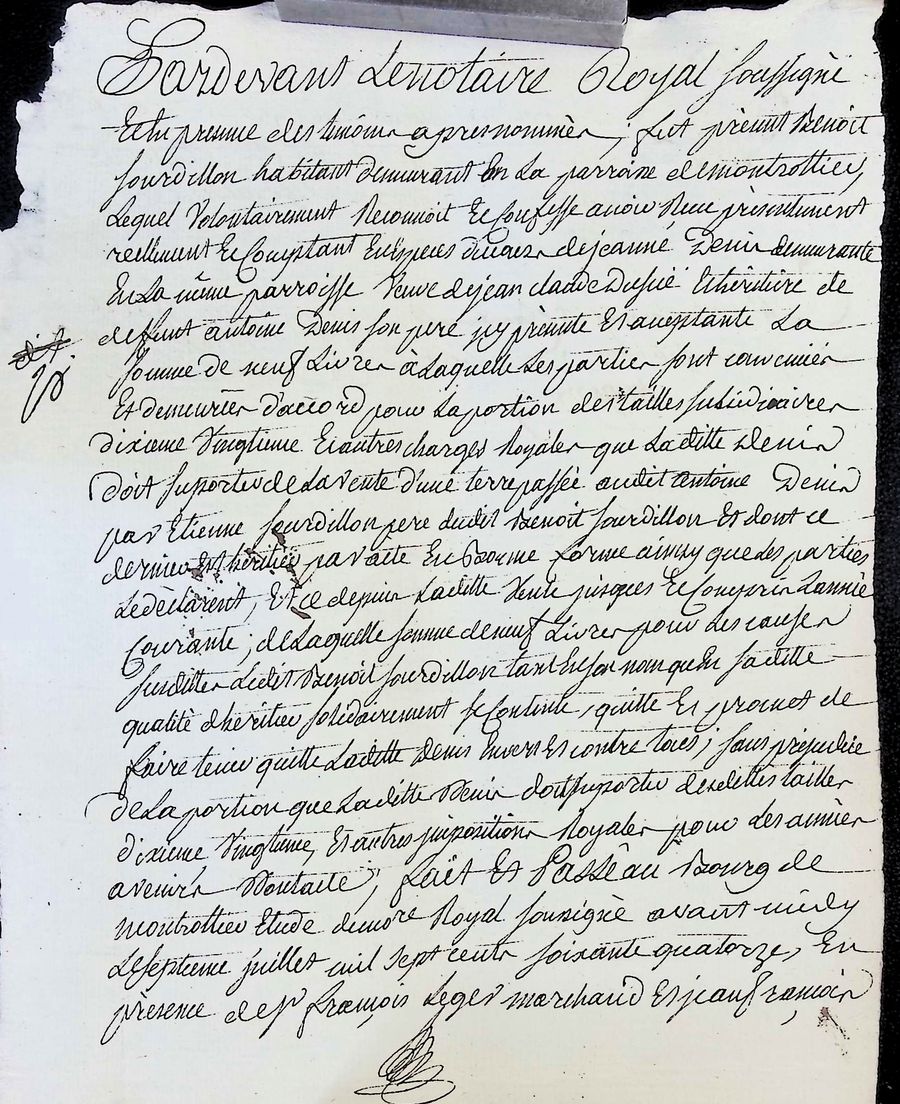 Pardevant Le notaire Royal soussigné
Et En presence des témoins apres nommés, fut présent Benoit
Jourdillon habitant demeurant En La parroisse de montrottier,
Lequel Volontairement Reconnoit Et Confesse avoir Receu présentement
réellement Et Comptant En Especes de jeanne Denis demeurante
En La même parroisse Veuve de jean claude Et héritiere de
deffunt antoine Denis son pere icy présente Et acceptante La
dit.
somme de neuf Livres à Laquelle Les parties sont convenües
Et demeurées d'accord pour La portion des tailles subsidiaires
dixieme Vingtieme Et autres charges Royales que Laditte Denis
doit suporter de La vente d'une terre passée audit antoine Denis
par Etienne Jourdillon pere dudit Benoit Jourdillon Et dont ce
dernier Est héritier par acte En Bonne forme ainsy que Les parties
Le déclarent, Et ce depuis Laditte Vente jusques Et Compris L'année
Courante; de Laquelle somme de neuf Livres pour Les causes
susdittes Ledit Benoit Jourdillon tant En son nom qu'En saditte
qualité d'héritier solidairement se Contente, quitte Et promet de
faire tenir quitte Laditte Denis Envers Et contre tous; sans préjudice
de La portion que Laditte Denis doit suporter desdittes tailles
dixieme Vingtieme, Et autres impositions Royales pour Les années
avenir Dont acte, fait Et Passé au Bourg de
montrottier Etude du nore Royal soussigné avant midy
Le septieme juillet mil sept cents soixante quatorze, En
présence de Sr françois Leger marchand Et jean françois